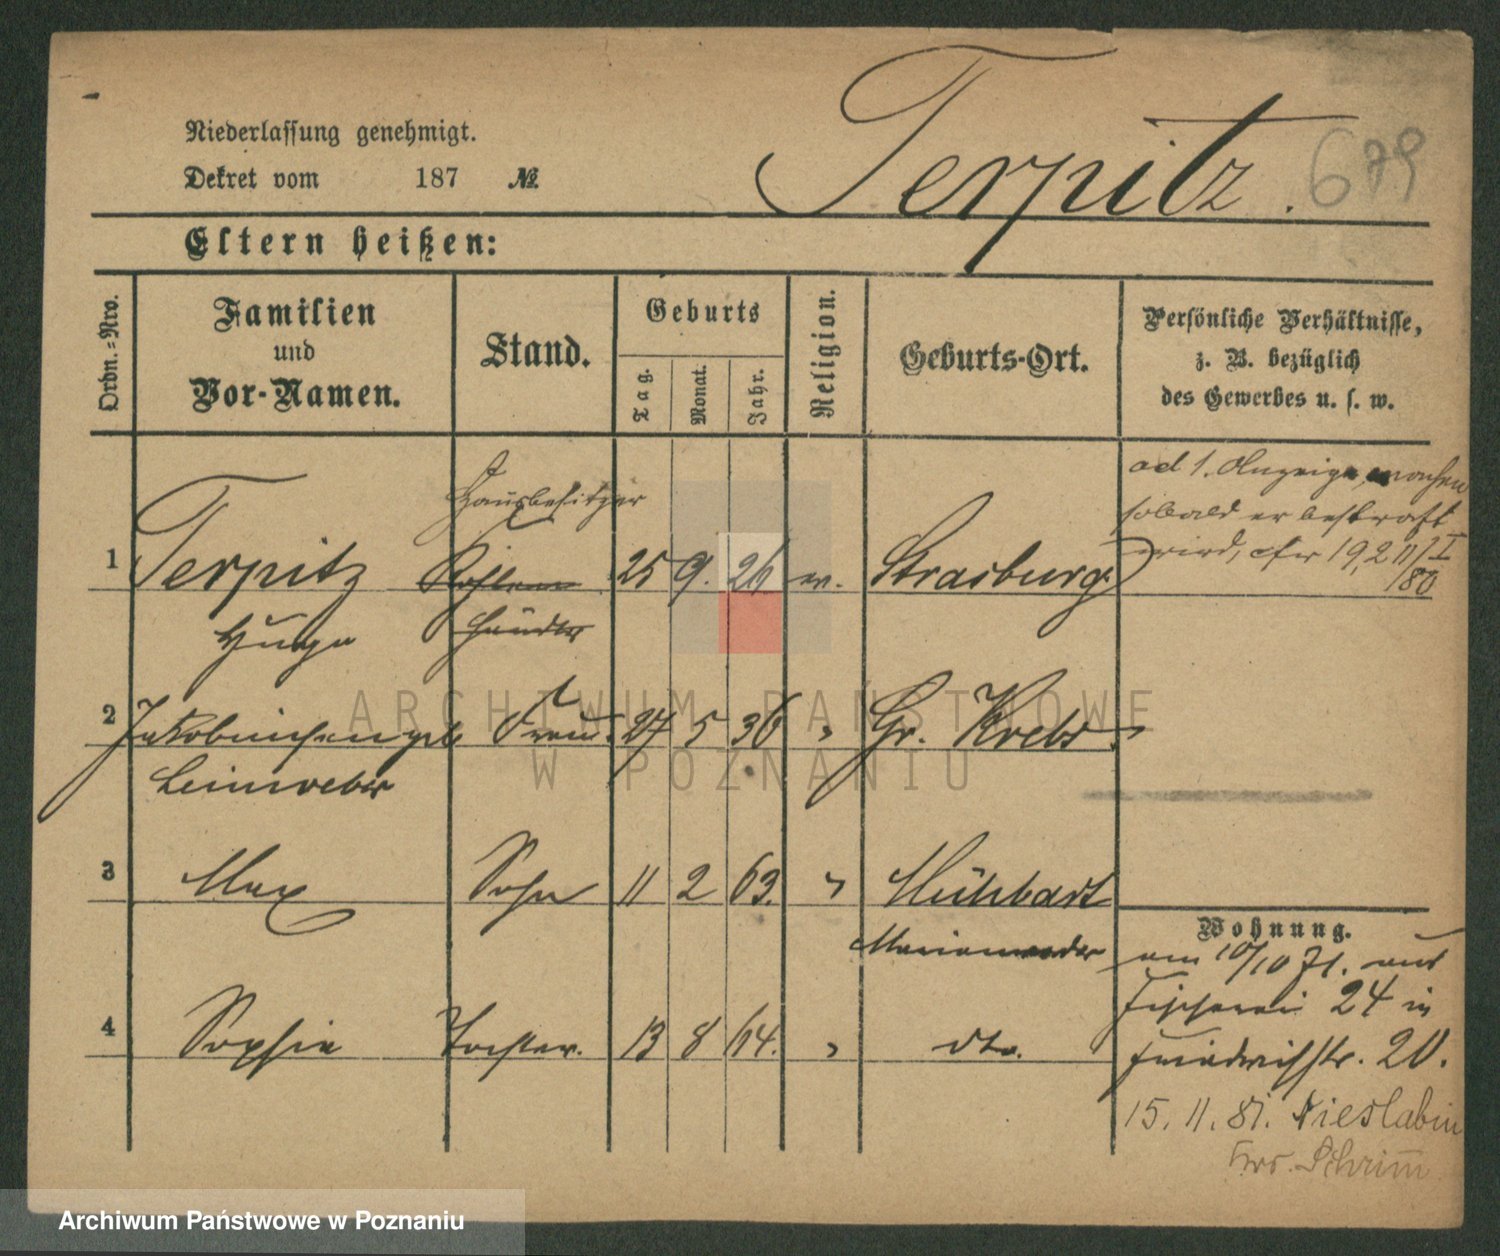 Niederlassung genehmigt.
Dekret vom 187 №
Terpitz.
679
Eltern heißen:
Ordn.-Nro.
Familien
und
Vor-Namen.
Stand.
Geburts
Tag.
Monat.
Jahr.
Religion.
Geburts-Ort.
Persönliche Verhältnisse,
z. B. bezüglich
des Gewerbes u. s. w.
ad 1. Anzeige machen
sobald er bestraft
wird, cfr 19,2 11/I
/80
Hausbesitzer
1 Terpitz Kohlen 25 9. 26 ev. Strasburg
Hugo händler
2 geb Frau 27 5 36 " Gr. Krebs
Leinweber
3 Max Sohn 11 2 63. " Mühlbad
Marienwerder
4 Sophie Tochter. 13 8 64. " dto.
Wohnung.
am 10/10 71. aus
Fischerei 24 in
Friedrichstr. 20.
15. 11. 81. Nieslabin
Krs. Schrimm
ARCHIWUM PAŃSTWOWE
W POZNANIU
Archiwum Państwowe w Poznaniu